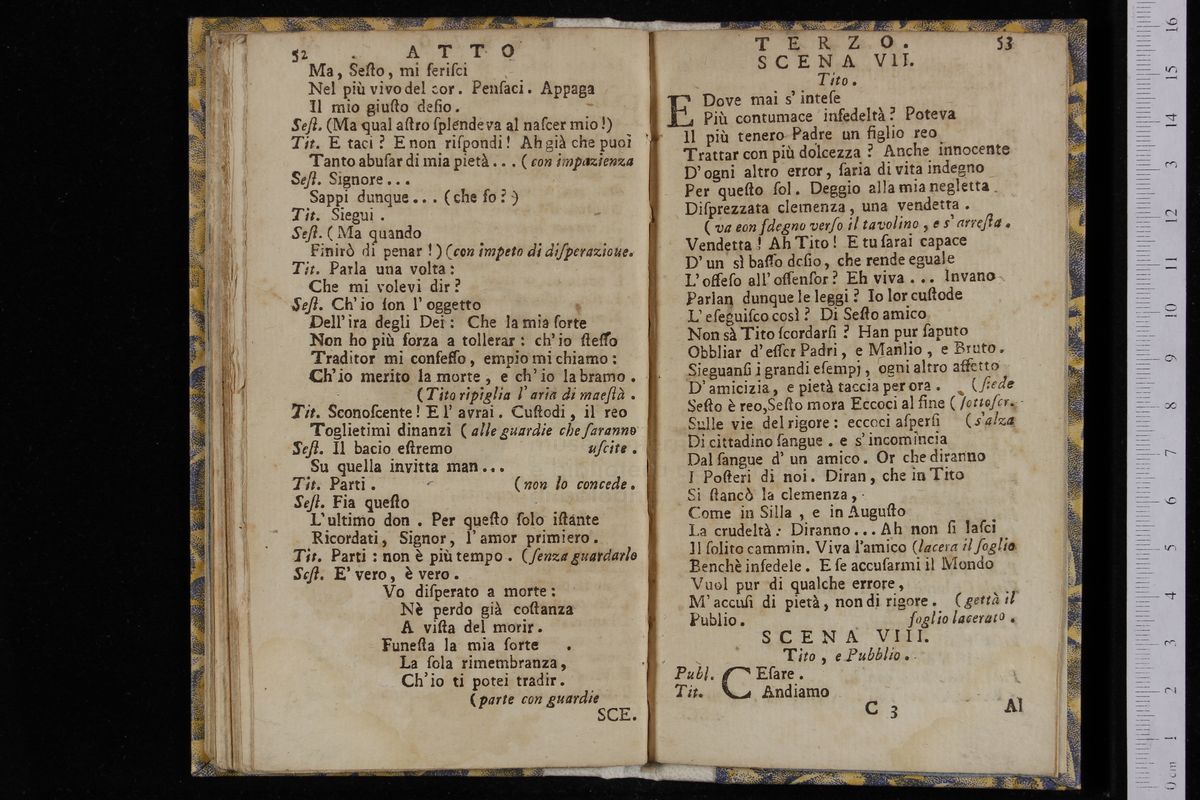 52 . ATTO
Ma, Seſto, mi feriſci
Nel più vivo del cor. Penſaci. Appaga
Il mio giuſto deſio.
Seſt. (Ma qual aſtro ſplendeva al naſcer mio!)
Tit. E taci? E non riſpondi! Ah già che puoi
Tanto abuſar di mia pietà... (con impazienza
Seſt. Signore...
Sappi dunque... (che fo?)
Tit. Siegui.
Seſt. (Ma quando
Finirò di penar!) (con impeto di diſperazioue.
Tit. Parla una volta:
Che mi volevi dir?
Seſt. Ch'io ſon l'oggetto
Dell'ira degli Dei: Che la mia ſorte
Non ho più forza a tollerar: ch'io ſteſſo
Traditor mi confeſſo, empio mi chiamo:
Ch'io merito la morte, e ch'io la bramo.
(Tito ripiglia l'aria di maeſtà.
Tit. Sconoſcente! E l'avrai. Cuſtodi, il reo
Toglietimi dinanzi (alle guardie che ſaranno
Seſt. Il bacio eſtremo uſcite.
Su quella invitta man...
Tit. Parti. (non lo concede.
Seſt. Fia queſto
L'ultimo don. Per queſto ſolo iſtante
Ricordati, Signor, l'amor primiero.
Tit. Parti: non è più tempo. (ſenza guardarlo
Seſt. E' vero, è vero.
Vo diſperato a morte:
Nè perdo già coſtanza
A viſta del morir.
Funeſta la mia ſorte .
La ſola rimembranza,
Ch'io ti potei tradir.
(parte con guardie
SCE.
TERZO. 53
SCENA VII.
Tito.
E Dove mai s'inteſe
Più contumace infedeltà? Poteva
Il più tenero Padre un figlio reo
Trattar con più dolcezza? Anche innocente
D'ogni altro error, ſaria di vita indegno
Per queſto ſol. Deggio alla mia negletta
Diſprezzata clemenza, una vendetta.
(va eon ſdegno verſo il tavolino, e s'arreſta.
Vendetta! Ah Tito! E tu ſarai capace
D'un sì baſſo deſio, che rende eguale
L'offeſo all'offenſor? Eh viva... Invano
Parlan dunque le leggi? Io lor cuſtode
L'eſeguiſco così? Di Seſto amico
Non sà Tito ſcordarſi? Han pur ſaputo
Obbliar d'eſſer Padri, e Manlio, e Bruto.
Sieguanſi i grandi eſempj, ogni altro affetto
D'amicizia, e pietà taccia per ora. (ſiede
Seſto è reo,Seſto mora Eccoci al fine (ſottoſcr.
Sulle vie del rigore: eccoci aſperſi (s'alza
Di cittadino ſangue. e s'incomincia
Dal ſangue d'un amico. Or che diranno
I Poſteri di noi. Diran, che in Tito
Si ſtancò la clemenza,
Come in Silla, e in Auguſto
La crudeltà: Diranno... Ah non ſi laſci
Il ſolito cammin. Viva l'amico (lacera il foglio
Benchè infedele. E ſe accuſarmi il Mondo
Vuol pur di qualche errore,
M'accuſi di pietà, non di rigore. (gettà il
Publio. foglio lacerato.
SCENA VIII.
Tito, e Pubblio.
Publ. CEſare.
Tit. Andiamo
C 3 Al
0 cm 1 2 3 4 5 6 7 8 9 10 11 12 13 14 15 16